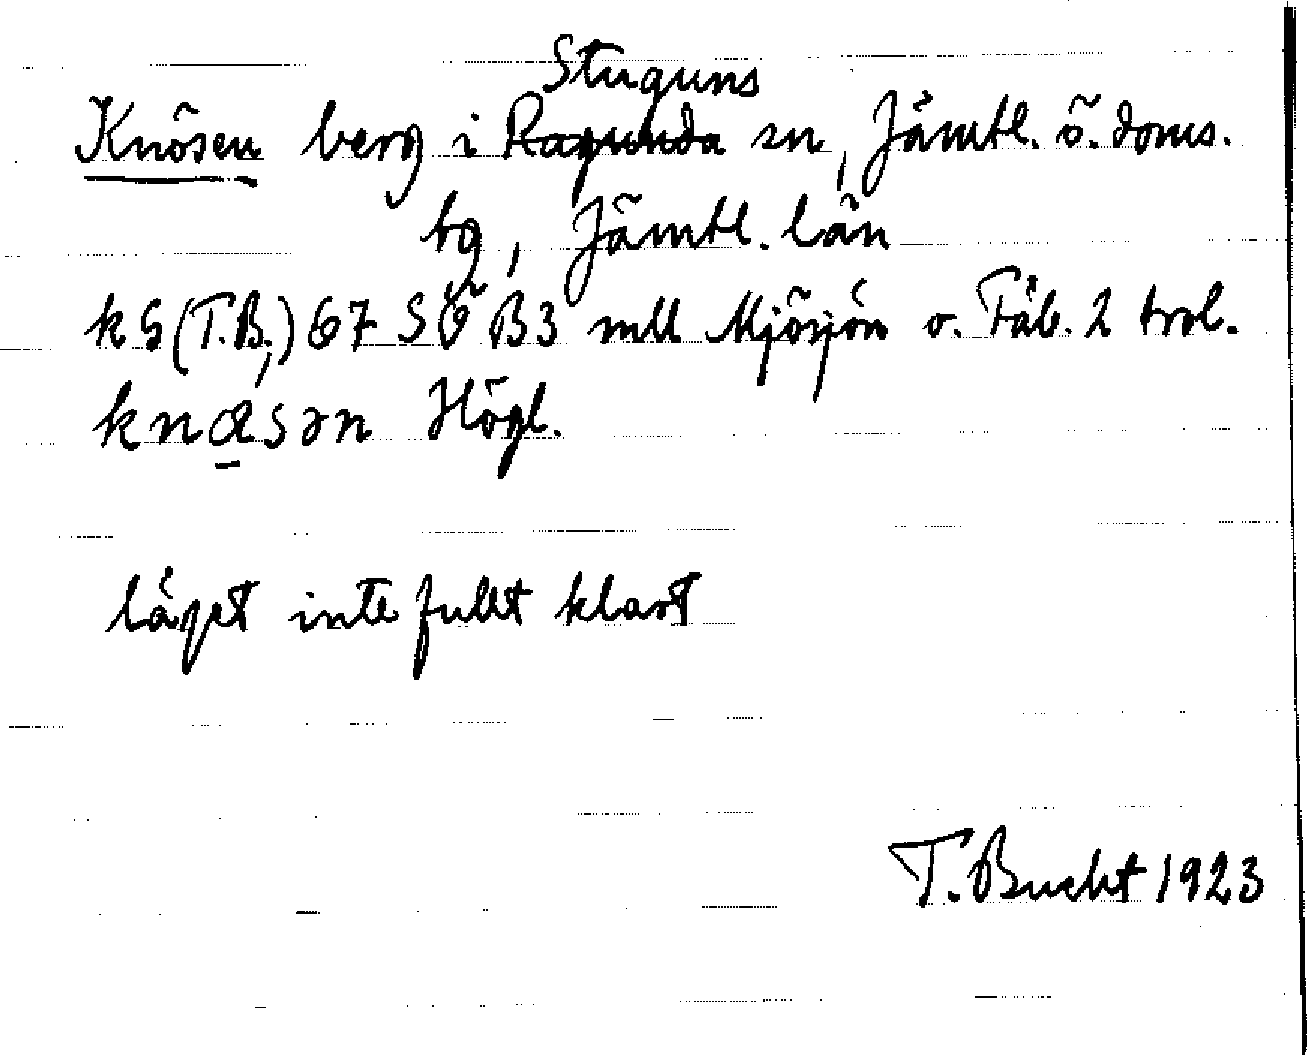 Stuguns
Knösen berg i Ragunda sn, Jämtl. ö. doms.
tg, Jämtl. län
k5 (T.B.) 67 SÖ B3 mll Mjösjön o. Fäb. 2 trol.
knɑ̱sən Högl.
läget inte fullt klart
T. Bucht 1923